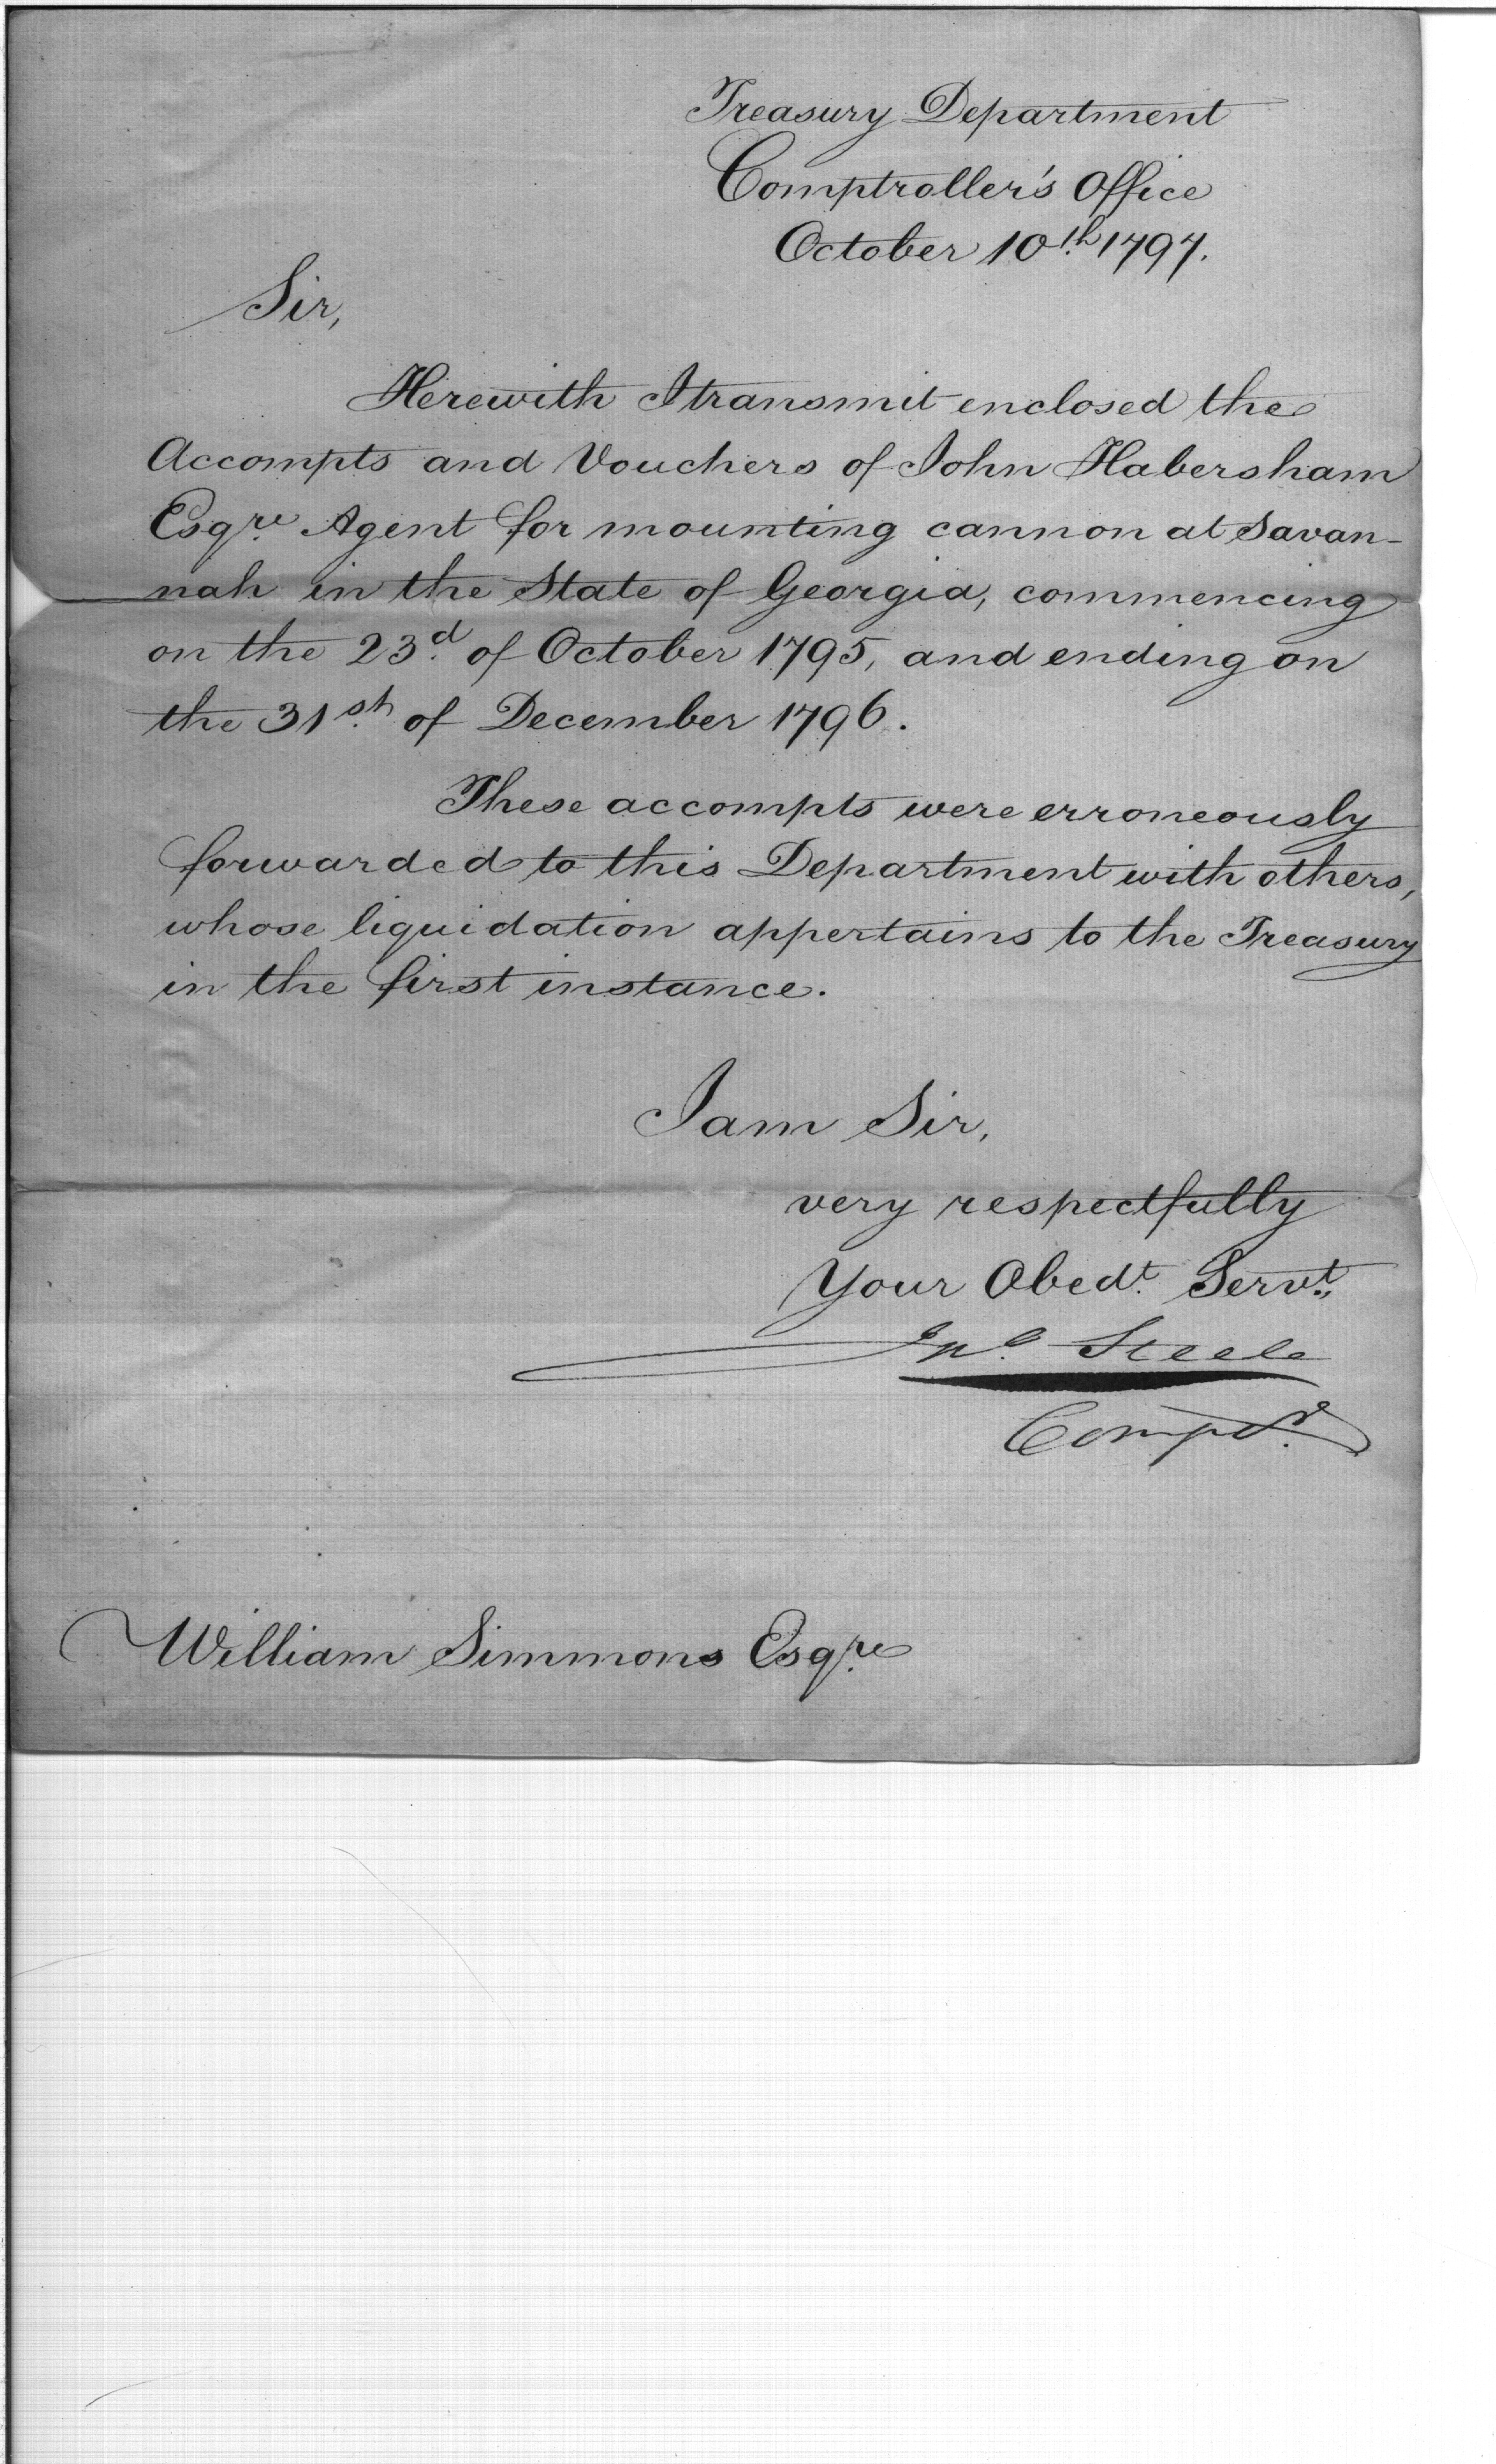 Treasury Department
Comptroller's Office
October 10th 1797.
Sir,
Herewith I transmit enclosed the
Accompts and Vouchers of John Habersham
Esqre Agent for mounting cannon at Savan-
nah in the State of Georgia, commencing
on the 23d of October 1795, and ending on
the 31st of December 1796.
These accompts were erroneously
forwarded to this Department with others,
whose liquidation appertains to the Treasury
in the first instance.
I am Sir,
very respectfully
Your Obedt Servt
Jno Steele
Compr
William Simmons Esqre